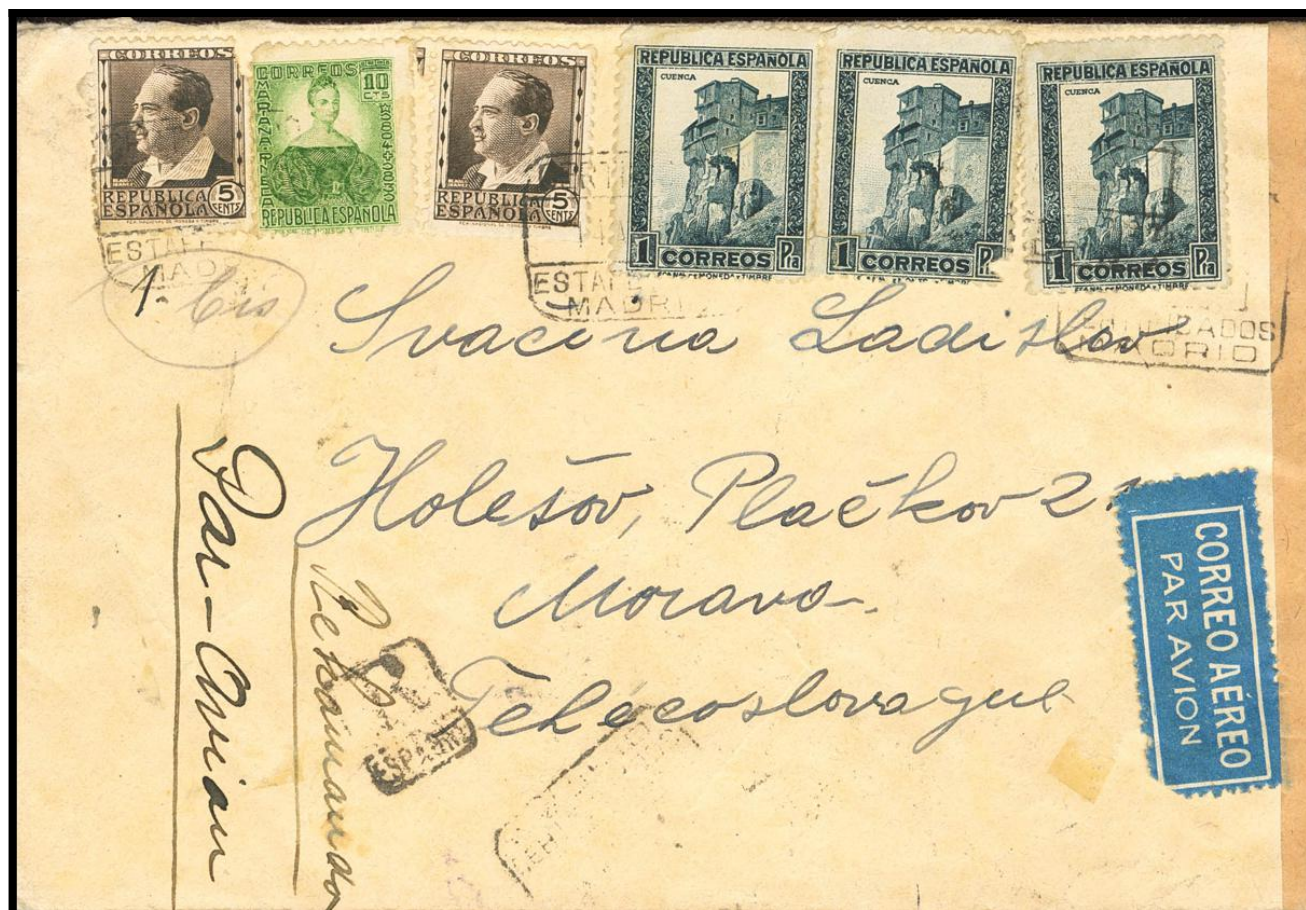 CORREOS
REPUBLICA ESPAÑOLA
5 CENTS
CORREOS
10 CTS
MARIANA PINEDA
REPUBLICA ESPAÑOLA
CORREOS
REPUBLICA ESPAÑOLA
5 CENTS
REPUBLICA ESPAÑOLA
CUENCA
1 CORREOS Pta
REPUBLICA ESPAÑOLA
CUENCA
1 CORREOS
REPUBLICA ESPAÑOLA
CUENCA
1 CORREOS Pta
MADRID
1. bis
Svacina Ladislav
Holešov, Plačkov
Morava
Tchécoslovaque
Par-Avion
CORREO AÉREO
PAR AVION